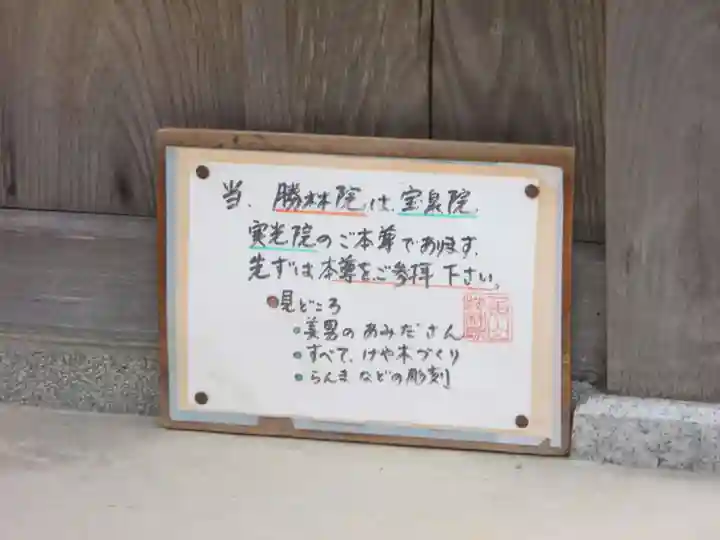 当、勝林院は、宝泉院、
実光院のご本尊であります。
先ずは本尊をご参拝下さい。
●見どころ
●美男のあみださん
●すべて、けや木づくり
●らんまなどの彫刻